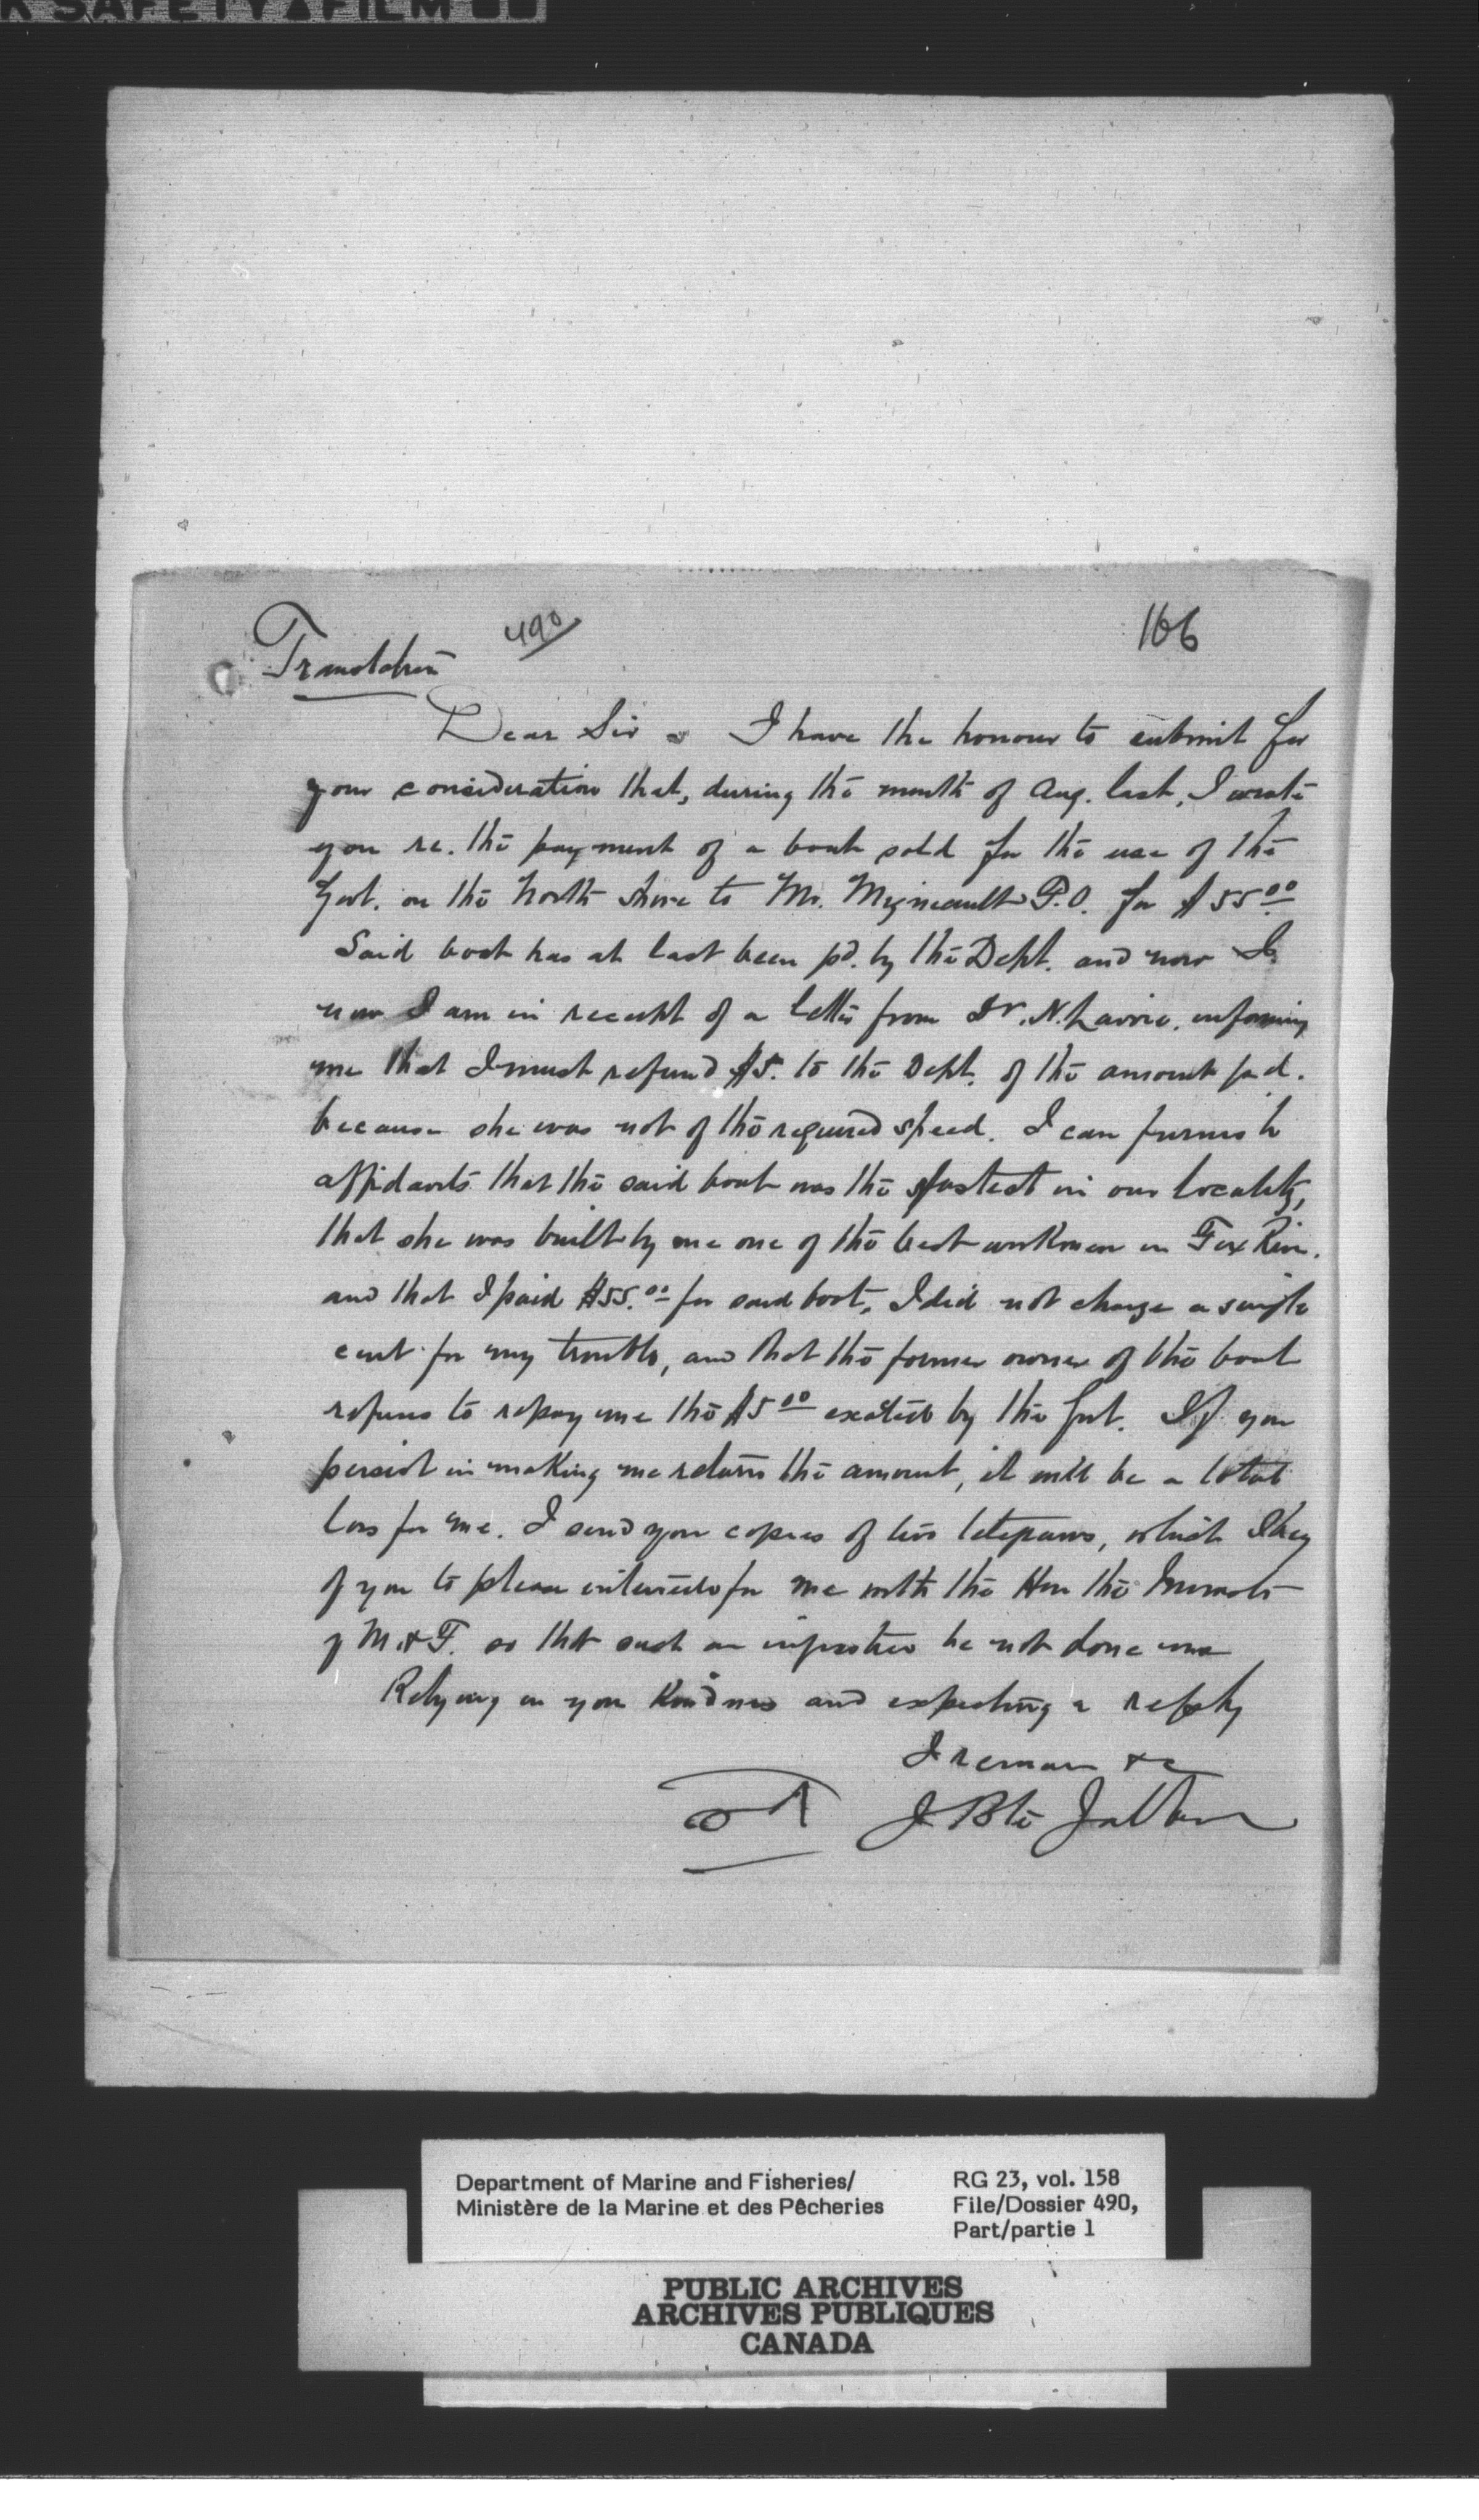 K SAFETY FILM
490
166
Translation
Dear Sir I have the honour to submit for
your consideration that, during the month of Aug. last, I wrote
you re. the payment of a boat sold for the use of the
Govt. on the North Shore to Mr. Migneault P.O. for $55.00
Said boat has at last been pd. by the Dept. and now I
now I am in receipt of a letter from Dr. N. Lavoie. informing
me that I must refund $5. to the Dept. of the amount pd.
because she was not of the required speed. I can furnish
affidavits that the said boat was the fastest in our locality,
that she was built by me one of the best workmen in Fox River.
and that I paid $55.00 for said boat, I did not charge a single
cent for my trouble, and that the former owner of the boat
refuses to repay me the $5.00 exacted by the Govt. If you
persist in making me return the amount, it will be a total
loss for me. I send you copies of two telegrams, which I beg
of you to please intercede for me with the Hon the Minister
of M. & F. so that such an injustice be not done me
Relying on your kindness and expecting a reply
I remain &c
J Bte
Department of Marine and Fisheries/
Ministère de la Marine et des Pêcheries
RG 23, vol. 158
File/Dossier 490,
Part/partie 1
PUBLIC ARCHIVES
ARCHIVES PUBLIQUES
CANADA